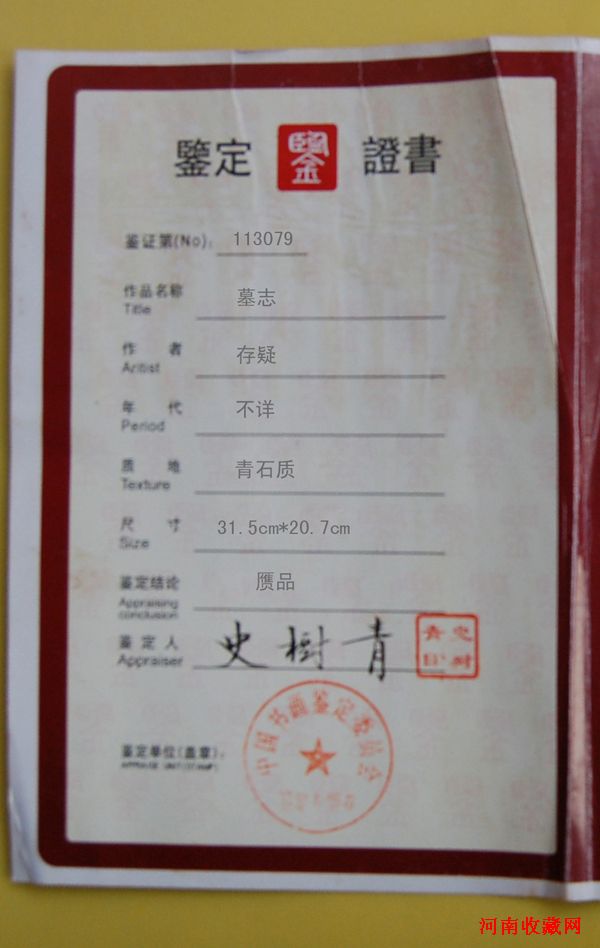 鑒定 鑒 證書
鉴证第(No): 113079
作品名称 墓志
Title
作 者 存疑
Aritist
年 代 不详
Period
质 地 青石质
Texture
尺 寸 31.5cm*20.7cm
Size
鉴定结论 赝品
Appraising
conclusion
鉴定人 史樹青
Appraiser
史树青印
中国书画鉴定委员会
鉴定单位(盖章):
河南收藏网